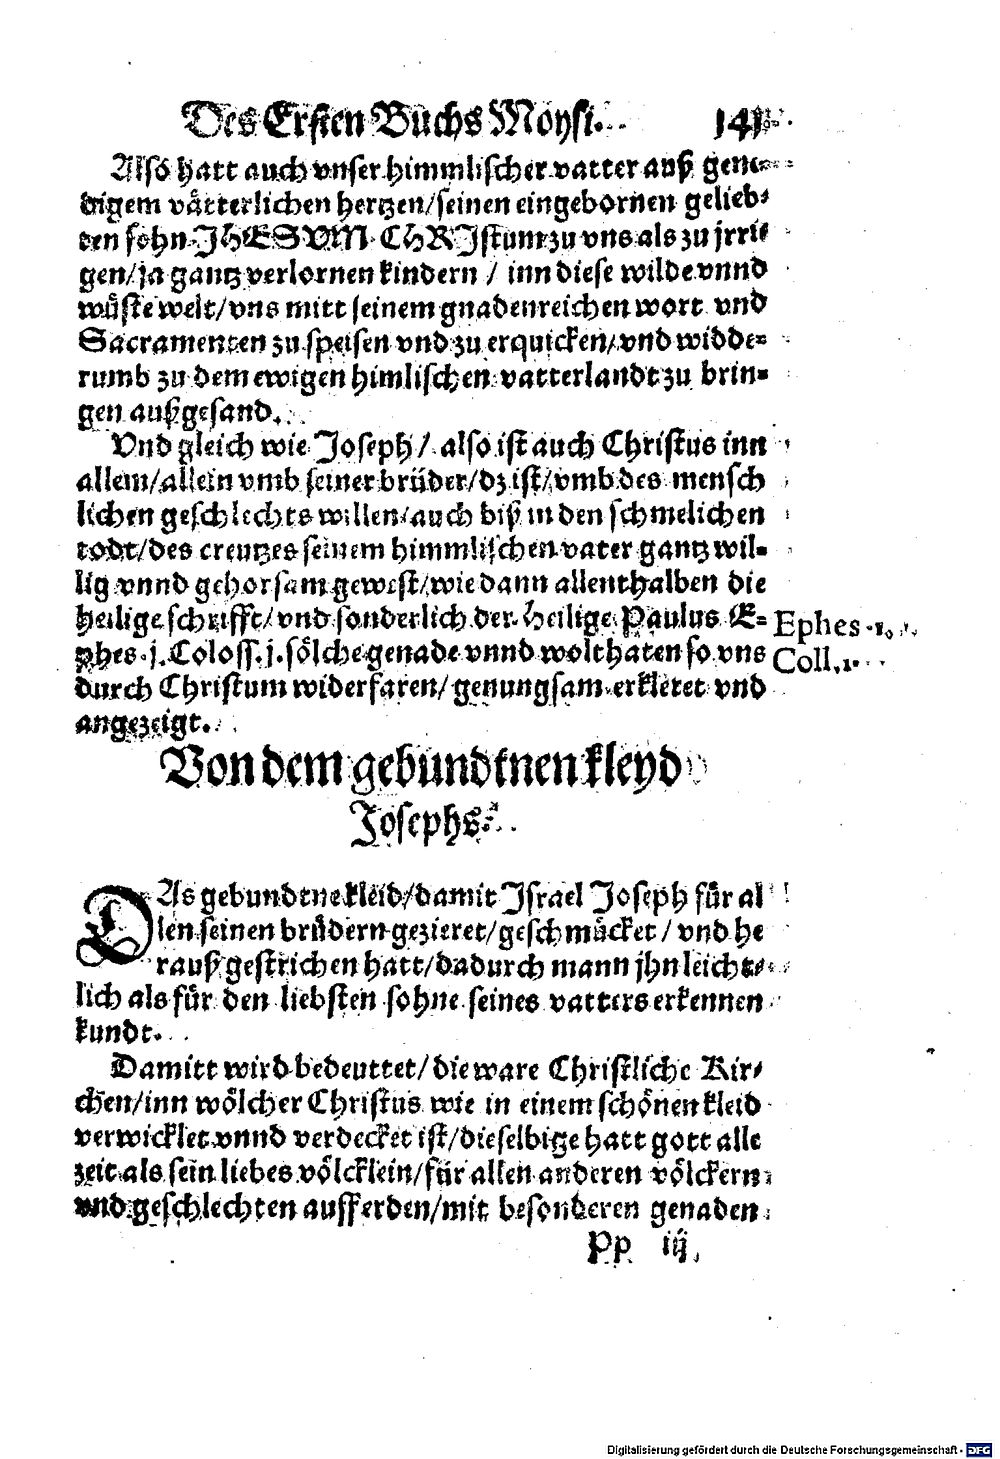 Des Ersten Buchs Moysi. 141
Also hatt auch vnser himmlischer vatter auß gene
digem vätterlichen hertzen/seinen eingebornen gelieb⸗
ten sohn JHESVM CHRJstum zu vns als zu jrri⸗
gen/ja gantz verlornen kindern / inn diese wilde vnnd
wüste welt/vns mitt seinem gnadenreichen wort vnd
Sacramenten zu speisen vnd zu erquicken/vnd widde⸗
rumb zu dem ewigen himlischen vatterlandt zu brin⸗
gen außgesand.
Vnd gleich wie Joseph / also ist auch Christus inn
allem/allein vmb seiner brüder/dz ist/vmb des mensch
lichen geschlechts willen/auch biß in den schmelichen
todt/des creutzes seinem himmlischen vater gantz wil⸗
lig vnnd gehorsam gewest/wie dann allenthalben die
heilige schrifft/vnd sonderlich der heilige Paulus E⸗
phes. j. Coloss. j. sölche genade vnnd wolthaten so vns
durch Christum widerfaren/genungsam erkleret vnd
angezeigt.
Ephes. 1.
Coll. 1.
Von dem gebundtnen kleyd
Josephs.
DAs gebundtne kleid/damit Jsrael Joseph für al
len seinen brüdern gezieret/geschmücket / vnd he
rauß gestrichen hatt/dadurch mann jhn leicht⸗
lich als für den liebsten sohne seines vatters erkennen
kundt.
Damitt wird bedeuttet/die ware Christliche Kir⸗
chen/inn wölcher Christus wie in einem schönen kleid
verwicklet vnnd verdecket ist/dieselbige hatt gott alle
zeit als sein liebes völcklein/für allen anderen völckern
vnd geschlechten aufferden/mit besonderen genaden
Pp iij
Digitalisierung gefördert durch die Deutsche Forschungsgemeinschaft - DFG